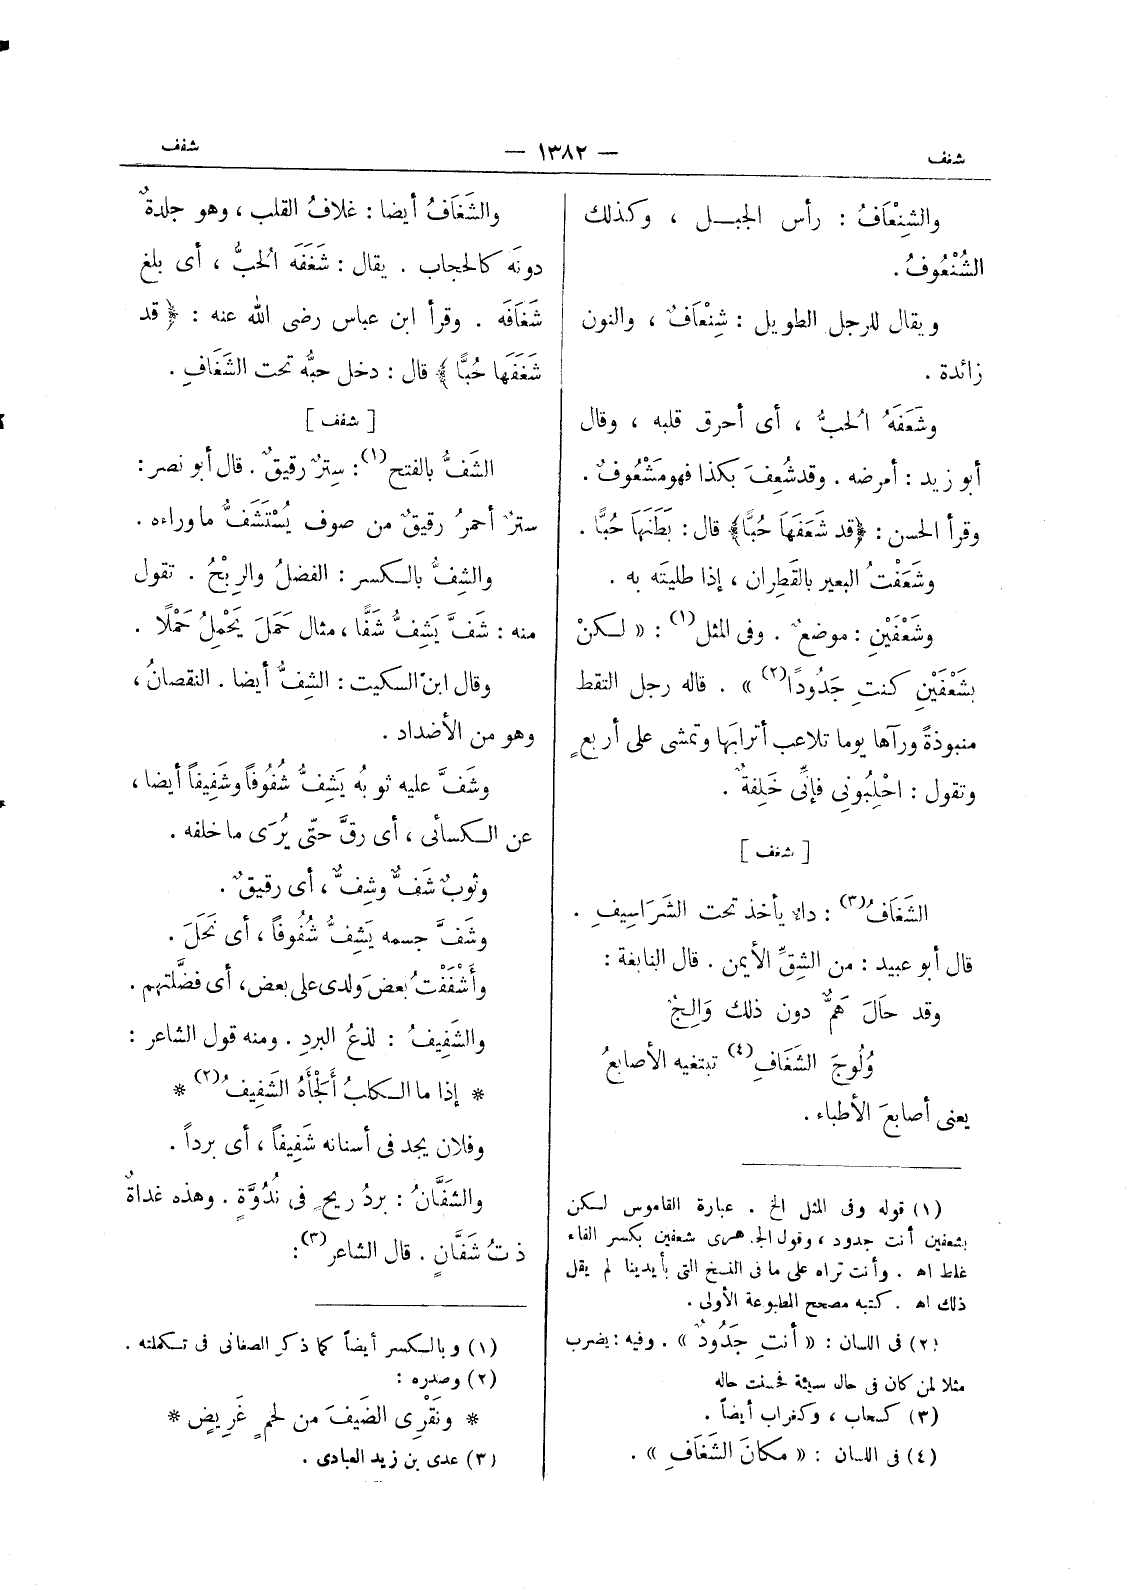 شغف
— ١٣٨٢ —
شفف
والشِنْعَافُ : رأس الجبــل ، وكذلك
الشُنْعُوفُ.
ويقال للرجل الطويل : شِنْعَافٌ ، والنون
زائدة .
وشَعَفَهُ الحبُّ ، أى أحرق قلبه ، وقال
أبو زيد : أمرضه . وقد شُعِفَ بكذا فهو مَشْعُوفٌ .
وقرأ الحسن : ﴿قد شَعَفَهَا حُبًّا﴾ قال : بَطَنَهَا حُبًّا .
وشَعَفْتُ البعير بالقَطِران ، إذا طليتَه به .
وشَعْفَيْنِ : موضعٌ . وفى المثل(١) : « لـكنْ
بشَعْفَيْنِ كنتِ جَدُودًا(٢) » . قاله رجل التقط
منبوذةً ورآها يوما تلاعب أترابَها وتمشى على أربعٍ
وتقول : احْلِبُونِى فإنِّى خَلِفةٌ .
[ شغف ]
الشَغَافُ(٣) : داء يأخذ تحت الشَرَاسِيفِ .
قال أبو عبيد : من الشِقِّ الأيمن . قال النابغة :
وقد حَالَ هَمٌّ دون ذلك وَالِجٌ
وُلُوجَ الشَغَافِ(٤) تبتغيه الأصابعُ
يعنى أصابعَ الأطباء .
(١) قوله وفى المثل الخ . عبارة القاموس لـكن
بشعفين أنت جدود ، وقول الجوهرى شعفين بكسر الفاء
غلط اه . وأنت تراه على ما فى النسخ التى بأيدينا لم يقل
ذلك اه . كتبه مصحح المطبوعة الأولى .
(٢) فى اللسان : « أنتِ جَدُودٌ » . وفيه : يضرب
مثلا لمن كان فى حال سيئة فحسنت حاله
(٣) كسحاب ، وكغراب أيضاً .
(٤) فى اللسان : « مكانَ الشَغَافِ » .
والشَغَافُ أيضا : غلافُ القلب ، وهو جلدةٌ
دونَه كالحجاب . يقال : شَغَفَه الحبُّ ، أى بلغ
شَغَافَه . وقرأ ابن عباس رضى الله عنه : ﴿ قد
شَغَفَها حُبًّا ﴾ قال : دخل حبُّه تحت الشَغَافِ .
[ شفف ]
الشَفُّ بالفتح(١) : سِترٌ رقيقٌ . قال أبو نصر :
سترٌ أحمرُ رقيقٌ من صوف يُسْتَشَفُّ ما وراءه .
والشِفُّ بالـكسر : الفضلُ والرِبْحُ . تقول
منه : شَفَّ يَشِفُّ شَفًّا ، مثال حَمَلَ يَحْمِلُ حَمْلًا .
وقال ابن السكيت : الشِفُّ أيضا . النقصانُ ،
وهو من الأضداد .
وشَفَّ عليه ثوبُه يَشِفُّ شُفُوفاً وشَفِيفاً أيضا ،
عن الـكسائى ، أى رقَّ حتّى يُرَى ما خلفه .
وثوبٌ شَفٌّ وشِفٌّ ، أى رقيقٌ .
وشَفَّ جسمه يَشِفُّ شُفُوفاً ، أى نَحَلَ .
وأَشْفَفْتُ بعضَ ولدى على بعض، أى فضّلتهم .
والشَفِيفُ : لذعُ البردِ . ومنه قول الشاعر :
* إذا ما الـكلبُ أَلجْأَهُ الشَفِيفُ(٢) *
وفلان يجد فى أسنانه شَفِيفاً ، أى برداً .
والشَفَّانُ : بردُ ريحٍ فى نُدُوَّةٍ . وهذه غداةٌ
ذتُ شَفَّانٍ . قال الشاعر(٣) :
(١) وبالـكسر أيضاً كما ذكر الصغانى فى تـكملته .
(٢) وصدره :
* ونَقْرِى الضَيفَ من لحمٍ غَرِيضٍ *
(٣) عدى بن زيد العبادى .